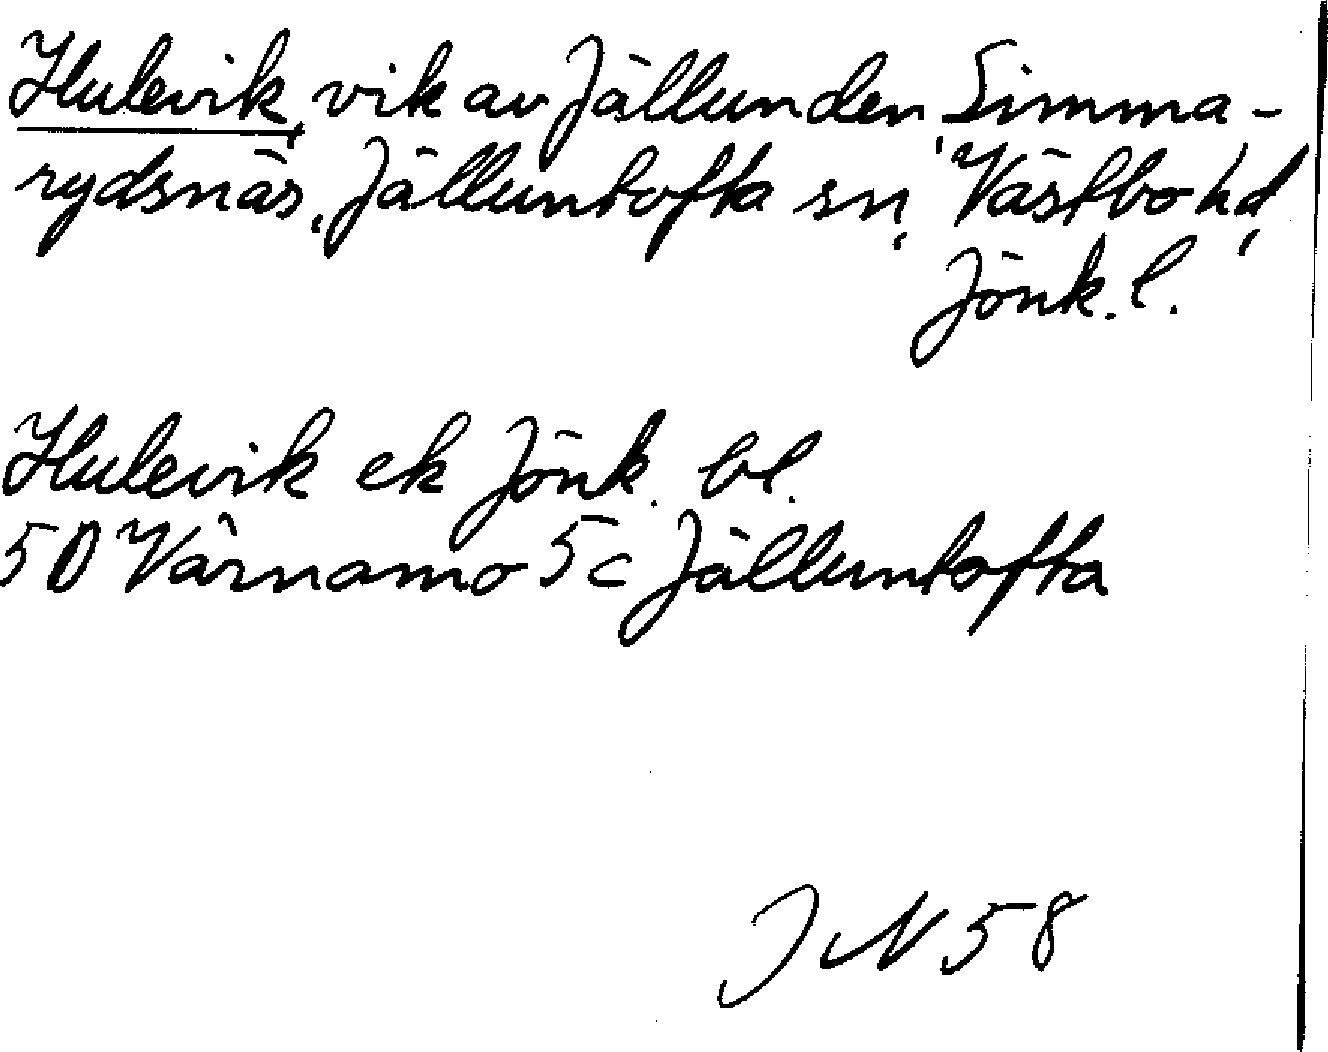 Hulevik, vik av Jällunden, Simma-
rydsnäs, Jälluntofta sn, Västbo hd,
Jönk. l.
Hulevik ek Jönk. bl.
5D Värnamo 5c Jälluntofta
JN 58